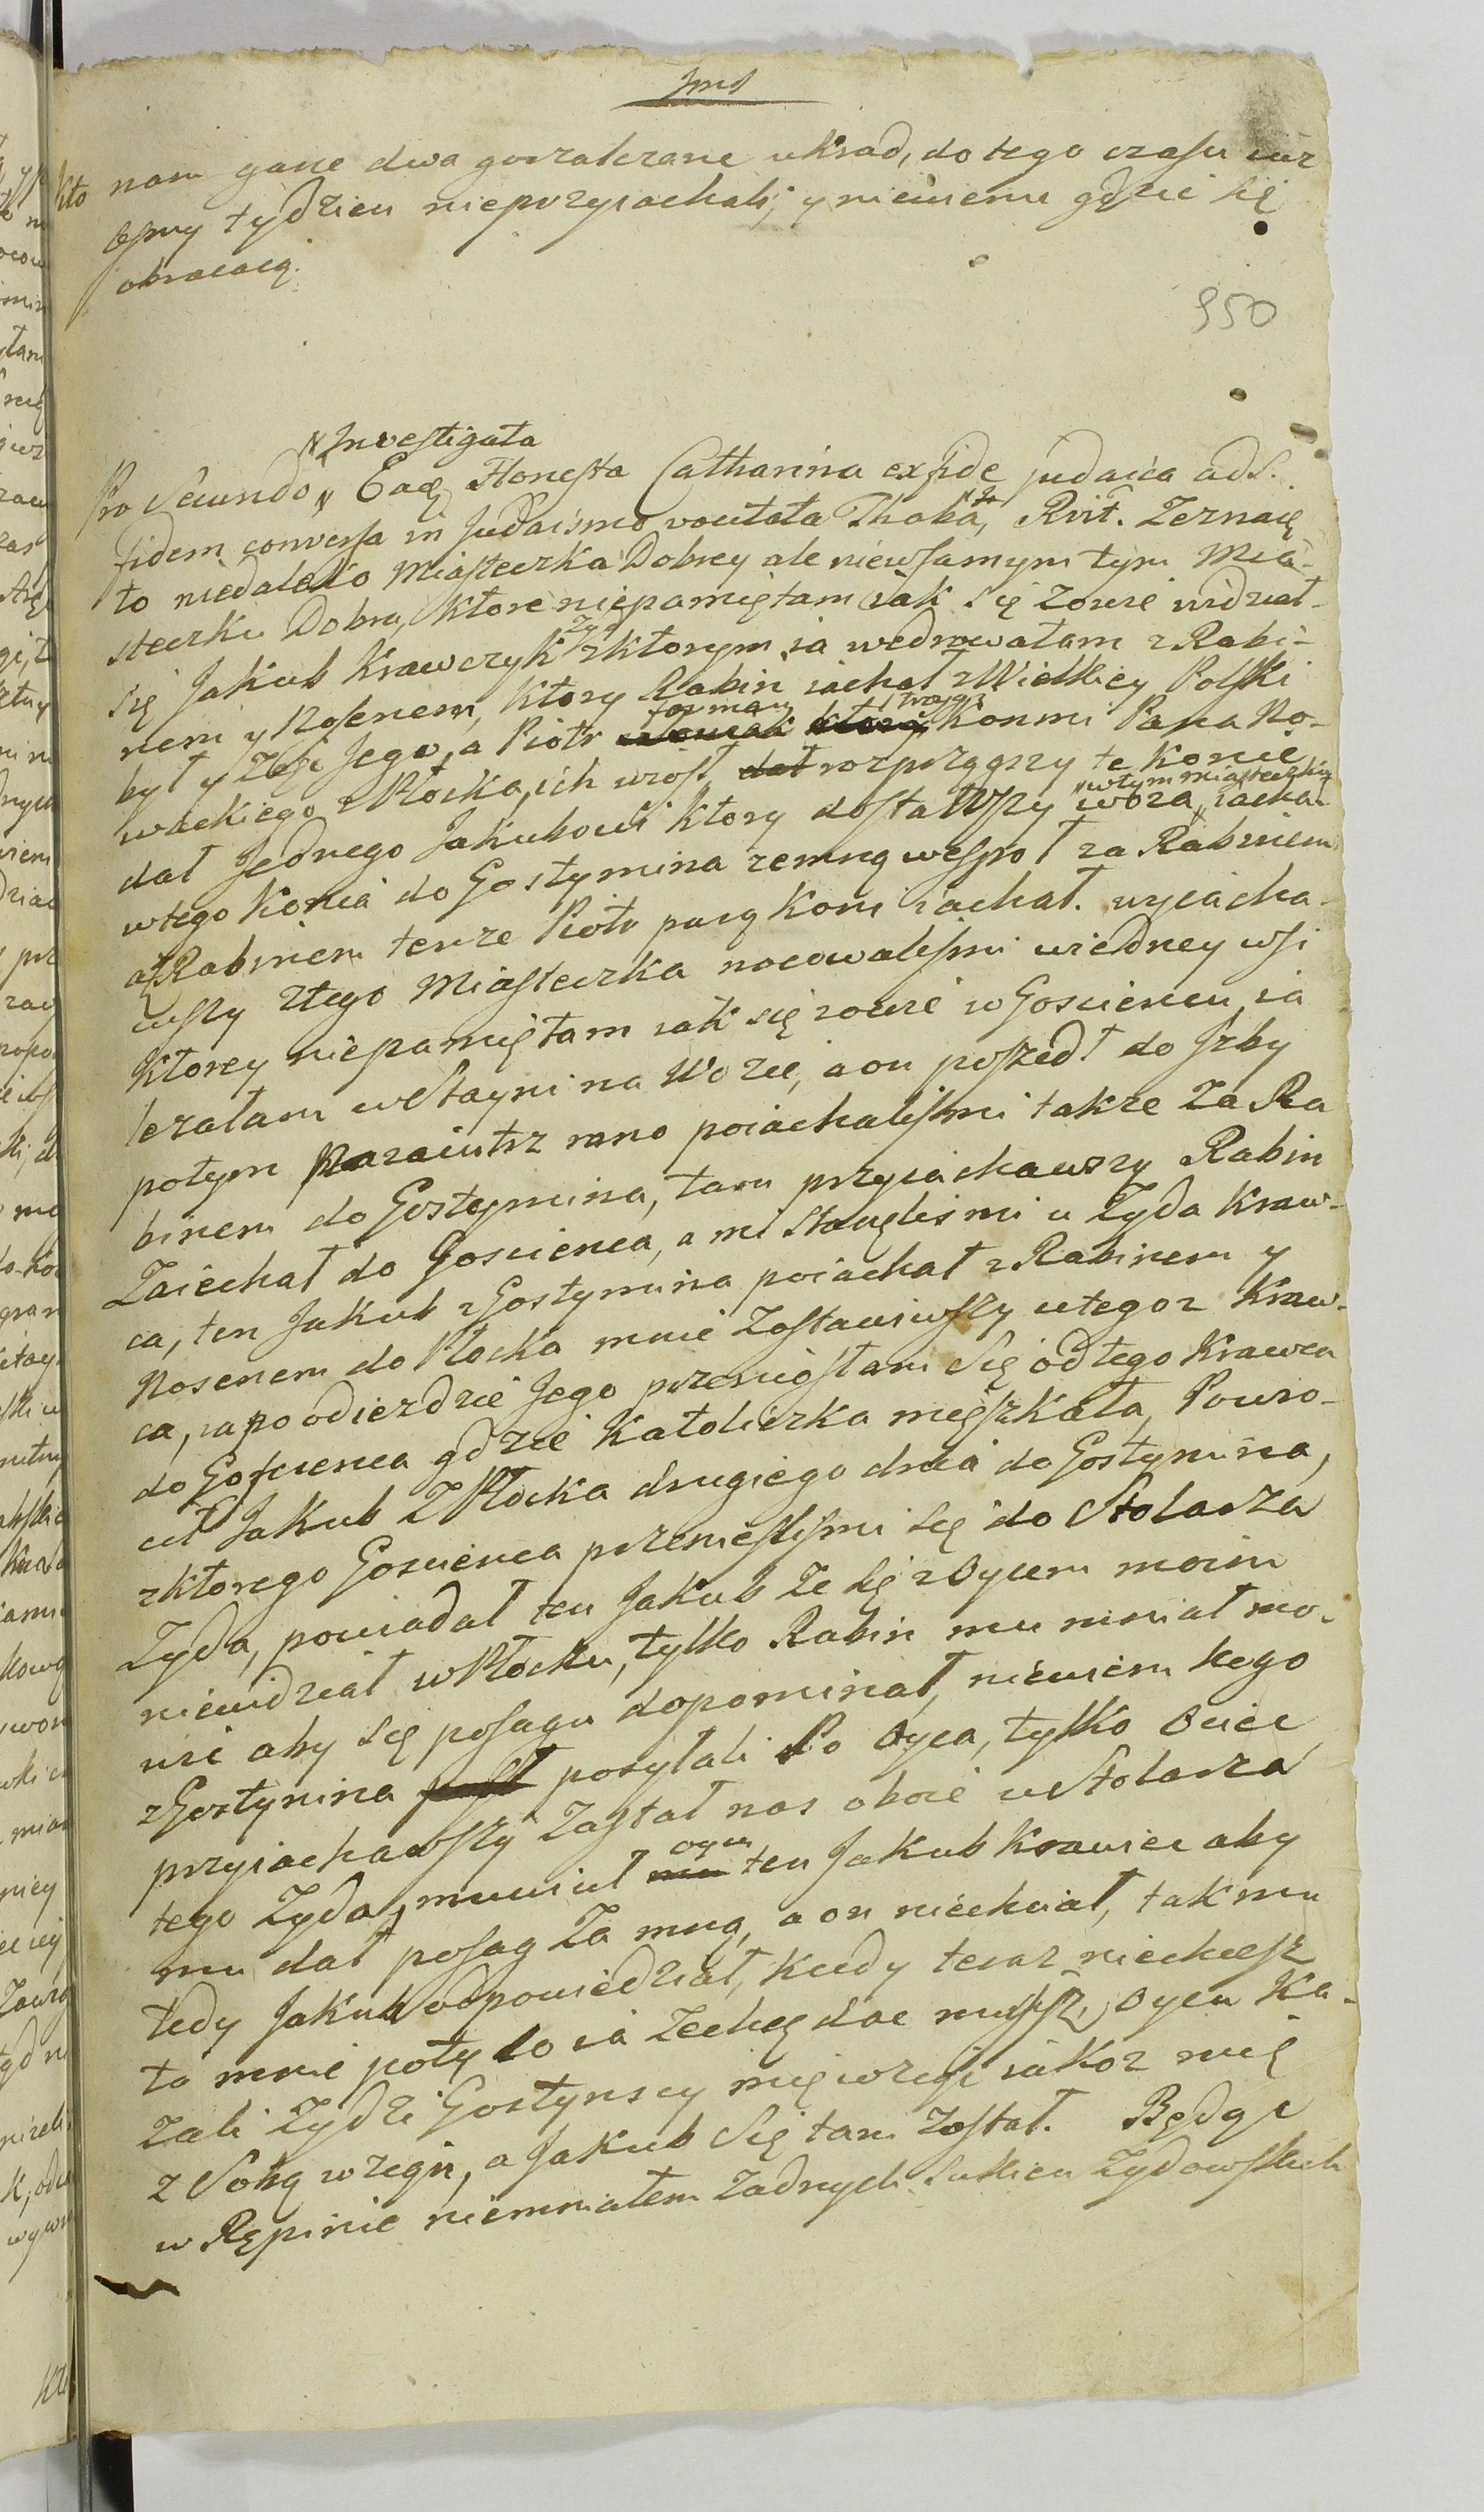 kto nam gane dwa gorzalczane ukrad, do tego czasu iuż
osmy tydzien nieprzyiachali, y niewiemu gdzie się
obracaią.
950
Investigata
Pro Secundo, Eadę Honesta Catharina ex fide judaica ad S.
fidem conversa in Judaismo vocitata Thoba, Rnit. Zeznaię
to niedaleko Miasteczka Dobrey ale niewsamym tym Mia-
steczku Dobra, ktore niepamiętam iak się zowie widział
się Jakub Krawczyk zktorym ia wedrowałam z Rabi-
nem y Nosenem, ktory Rabin iachał z Wielkiey Polski
był y Zęć Jego, a Piotr forman ktory końmi Pana No-
wackiego z Płocka, ich wiosł, dał rozprzągszy te konie
dał Jednego Jakubowi ktory dostawszy woza wtym miasteczku iachał
wtego konia do Gostymina zemną wespoł za Rabinem
a z Rabinem tenże Piotr parą koni iachał. wyiacha-
wszy ztego Miasteczka nocowalismi wiedney wsi
ktorey niepamiętam iak się zowie w Goscieńcu, ia
leżałam w Stayni na Wozie, a on poszedł do Izby
potym nazaiutrz rano poiachalismi także za Ra
binem do Gostymina, tam przyiachawszy Rabin
Zaiechał do Goscieńca, a mi Stanęlismi u Zyda Kraw-
ca, ten Jakub z Gostymina poiachał z Rabinem y
Nosenem do Płocka mnie Zostawiwszy utegoz Kraw-
ca, ia po odieździe Jego przeniosłam Się od tego Krawca
do Goscienca gdzie Katoliczka mięszkała, Powro-
cił Jakub z Płocka drugiego dnia do Gostymina,
zktorego Goscienca przeniesliśmi się do Stolarza
Zyda, powiadał ten Jakub Ze Się z Oycem moim
niewidział w Płocku, tylko Rabin mu mniał mo-
wić aby Się posagu dopominał, niewiem kego
z Gostynina posyłali Po Oyca, tylko Ociec
przyiachawszy Zastał nas oboie u Stolarza
tego Zyda, muwiuł oycu ten Jakub Krawiec aby
mu dał posag Za mną, a on niechciał, tak mu
tedy Jakub odpowiedział, kiedy teraz niechcesz
to mnie poty co ia Zechcę dac musisz, oycu Ka-
zali Zydzi Gostynscy mię wziąść iakoz mię
z Sobą wziąn, a Jakub Się tam Został. Będąc
w Rępinie niemniałem Zadnych Sukien Zydowskich